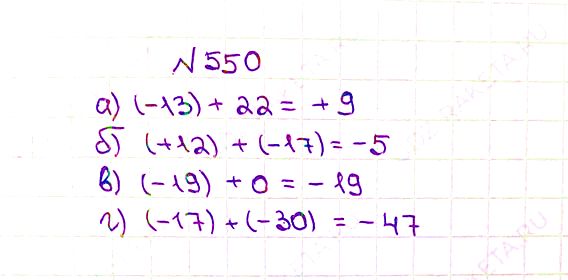 №550
а) (-13) + 22 = +9
б) (+12) + (-17) = -5
в) (-19) + 0 = -19
г) (-17) + (-30) = -47